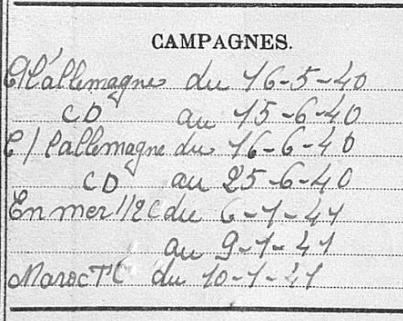 CAMPAGNES.
C/l'allemagne du 16-5-40
CD au 15-6-40
C/l'allemagne du 16-6-40
CD au 25-6-40
En mer 1/2C du 6-1-41
au 9-1-41
Maroc TC du 10-1-41